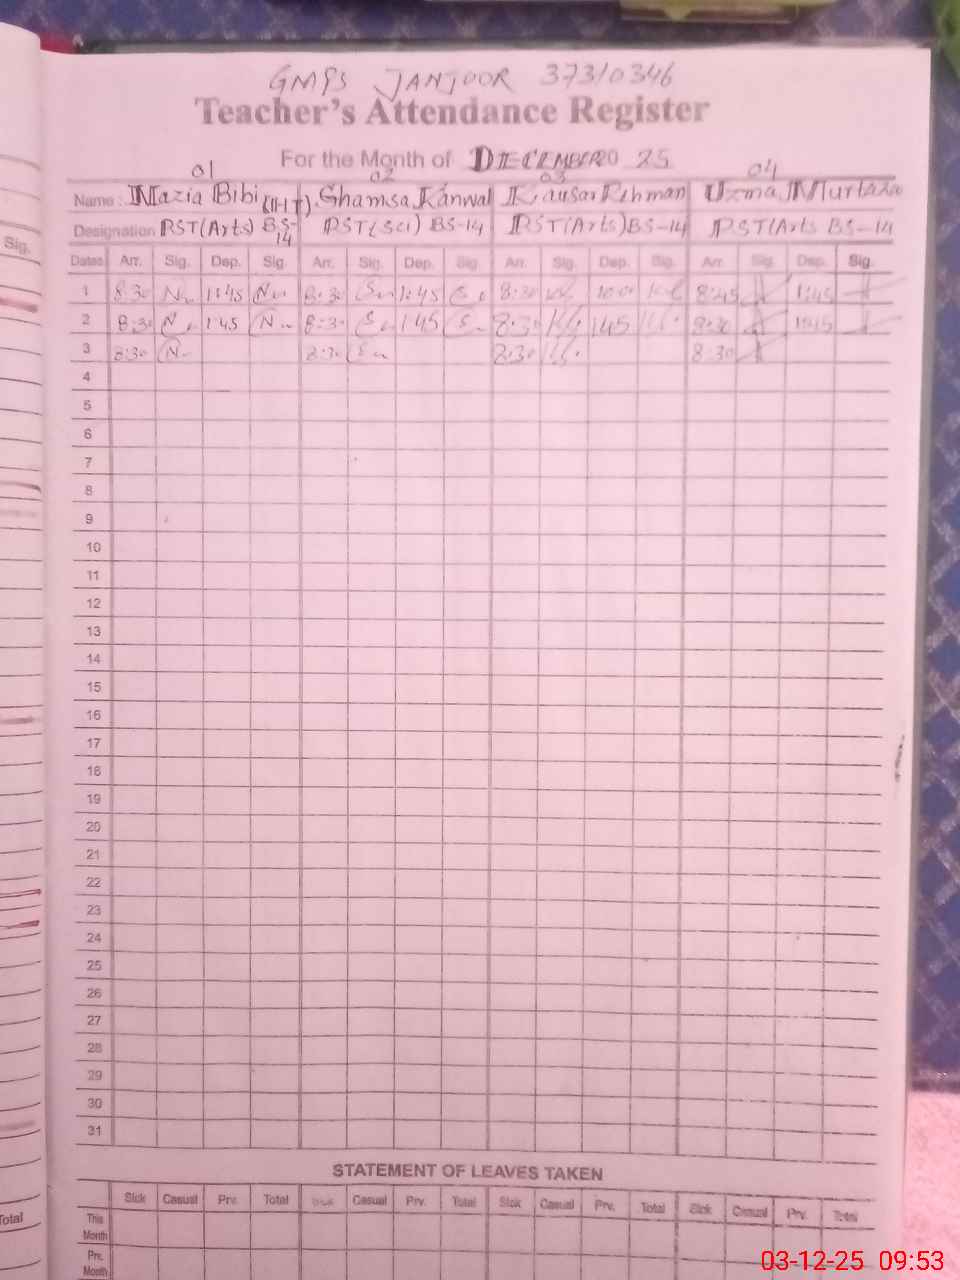 GMPS JANJOOR 37310346
Teacher's Attendance Register
For the Month of DECEMBER 20 25
01 02 03 04
Name: Nazia Bibi (IHT) Shamsa Kanwal Kausar Rehman Uzma Murtaza
Designation PST(Arts) BS-14 PST(Sci) BS-14 PST(Arts) BS-14 PST(Arts BS-14
Sig.
Dates Arr. Sig. Dep. Sig. Arr. Sig. Dep. Sig. Arr. Sig. Dep. Sig. Arr. Sig. Dep. Sig.
1 8:30 1:45 8:30 1:45 8:30 10:00 8:45 1:45
2 8:30 1:45 8:30 1:45 8:30 1:45 8:30 1:45
3 8:30 8:30 8:30 8:30
4
5
6
7
8
9
10
11
12
13
14
15
16
17
18
19
20
21
22
23
24
25
26
27
28
29
30
31
STATEMENT OF LEAVES TAKEN
Sick Casual Prv. Total Sick Casual Prv. Total Sick Casual Prv. Total Sick Casual Prv. Total
Total
This Month
Prv. Month
03-12-25 09:53